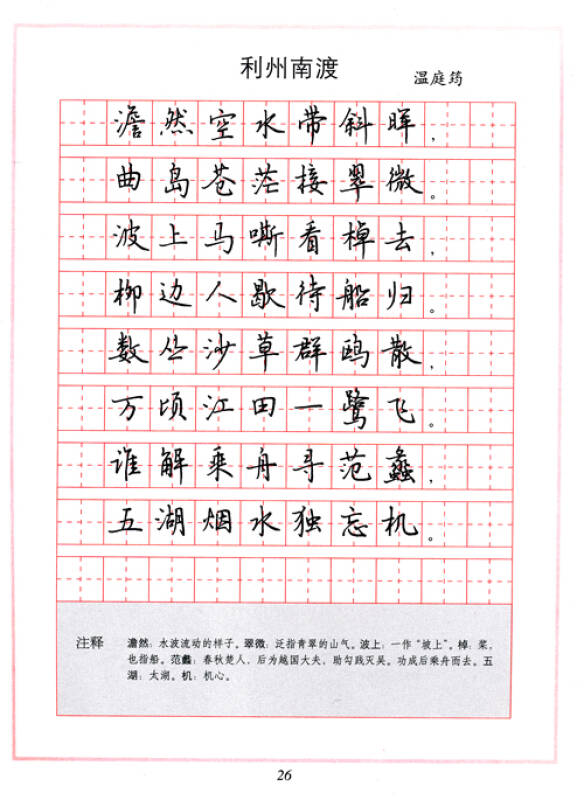 利州南渡
温庭筠
澹然空水带斜晖，
曲岛苍茫接翠微。
波上马嘶看棹去，
柳边人歇待船归。
数丛沙草群鸥散，
万顷江田一鹭飞。
谁解乘舟寻范蠡，
五湖烟水独忘机。
注释
澹然：水波流动的样子。翠微：泛指青翠的山气。波上：一作“坡上”。棹：桨，
也指船。范蠡：春秋楚人，后为越国大夫，助勾践灭吴。功成后乘舟而去。五
湖：太湖。机：机心。
26